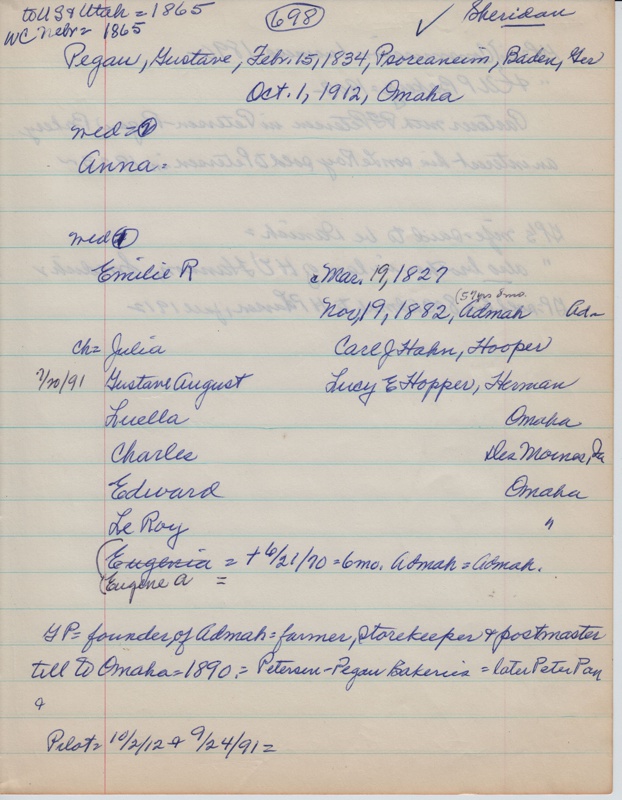 to US & Utah = 1865
698
Sheridan
WC Nebr = 1865
Pegau, Gustave, Febr. 15, 1834, Psoreaneim, Baden, Ger
Oct. 1, 1912, Omaha
med = 2
Anna =
med 1
Emilie R Mar. 19, 1827
(57 yrs 8 mo.
Nov, 19, 1882, Admah Ad~
ch= Julia Carl J Hahn, Hooper
7/20/91 Gustave August Lucy E Hopper, Herman
Luella Omaha
Charles Des Moines, Ia
Edward Omaha
Le Roy "
(Eugenia = + 6/21/70 = 6 mo. Admah = Admah.
(Eugene A =
GP = founder, of Admah = farmer, storekeeper & postmaster
till to Omaha = 1890. = Petersen-Pegau Bakeries = later Peter Pan
&
Pilot = 10/2/12 & 9/24/91 =